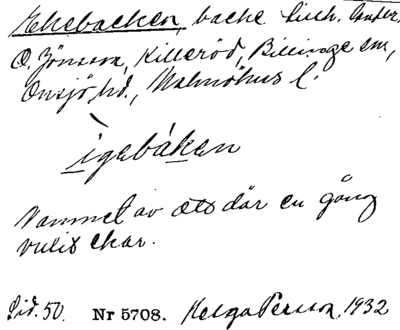 Ekebacken, backe
O. Jönsson, Killeröd, Billinge sn,
Onsjö hd., Malmöhus l.
ìgebáken
Namnet av att där en gång
vuxit ekar.
Sid. 50. Nr 5708. Helga Persson, 1932